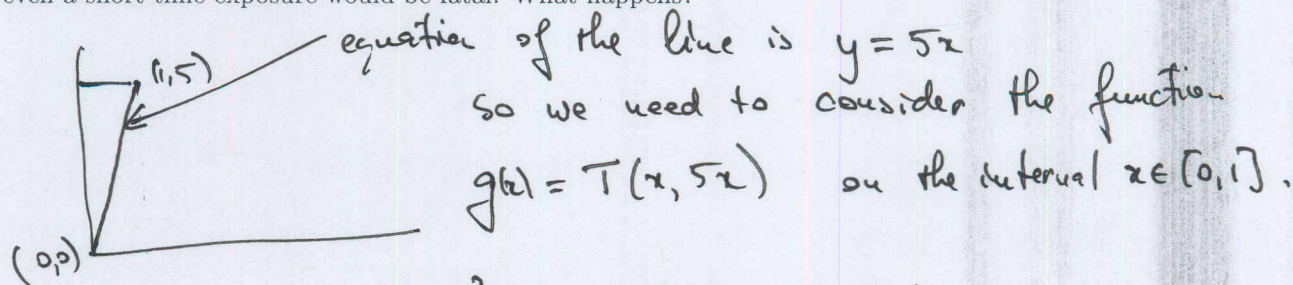 even a short time exposure would be fatal. What happens?
equation of the line is y = 5x
(1,5)
so we need to consider the function
g(x) = T(x, 5x) on the interval x ∈ [0,1].
(0,0)